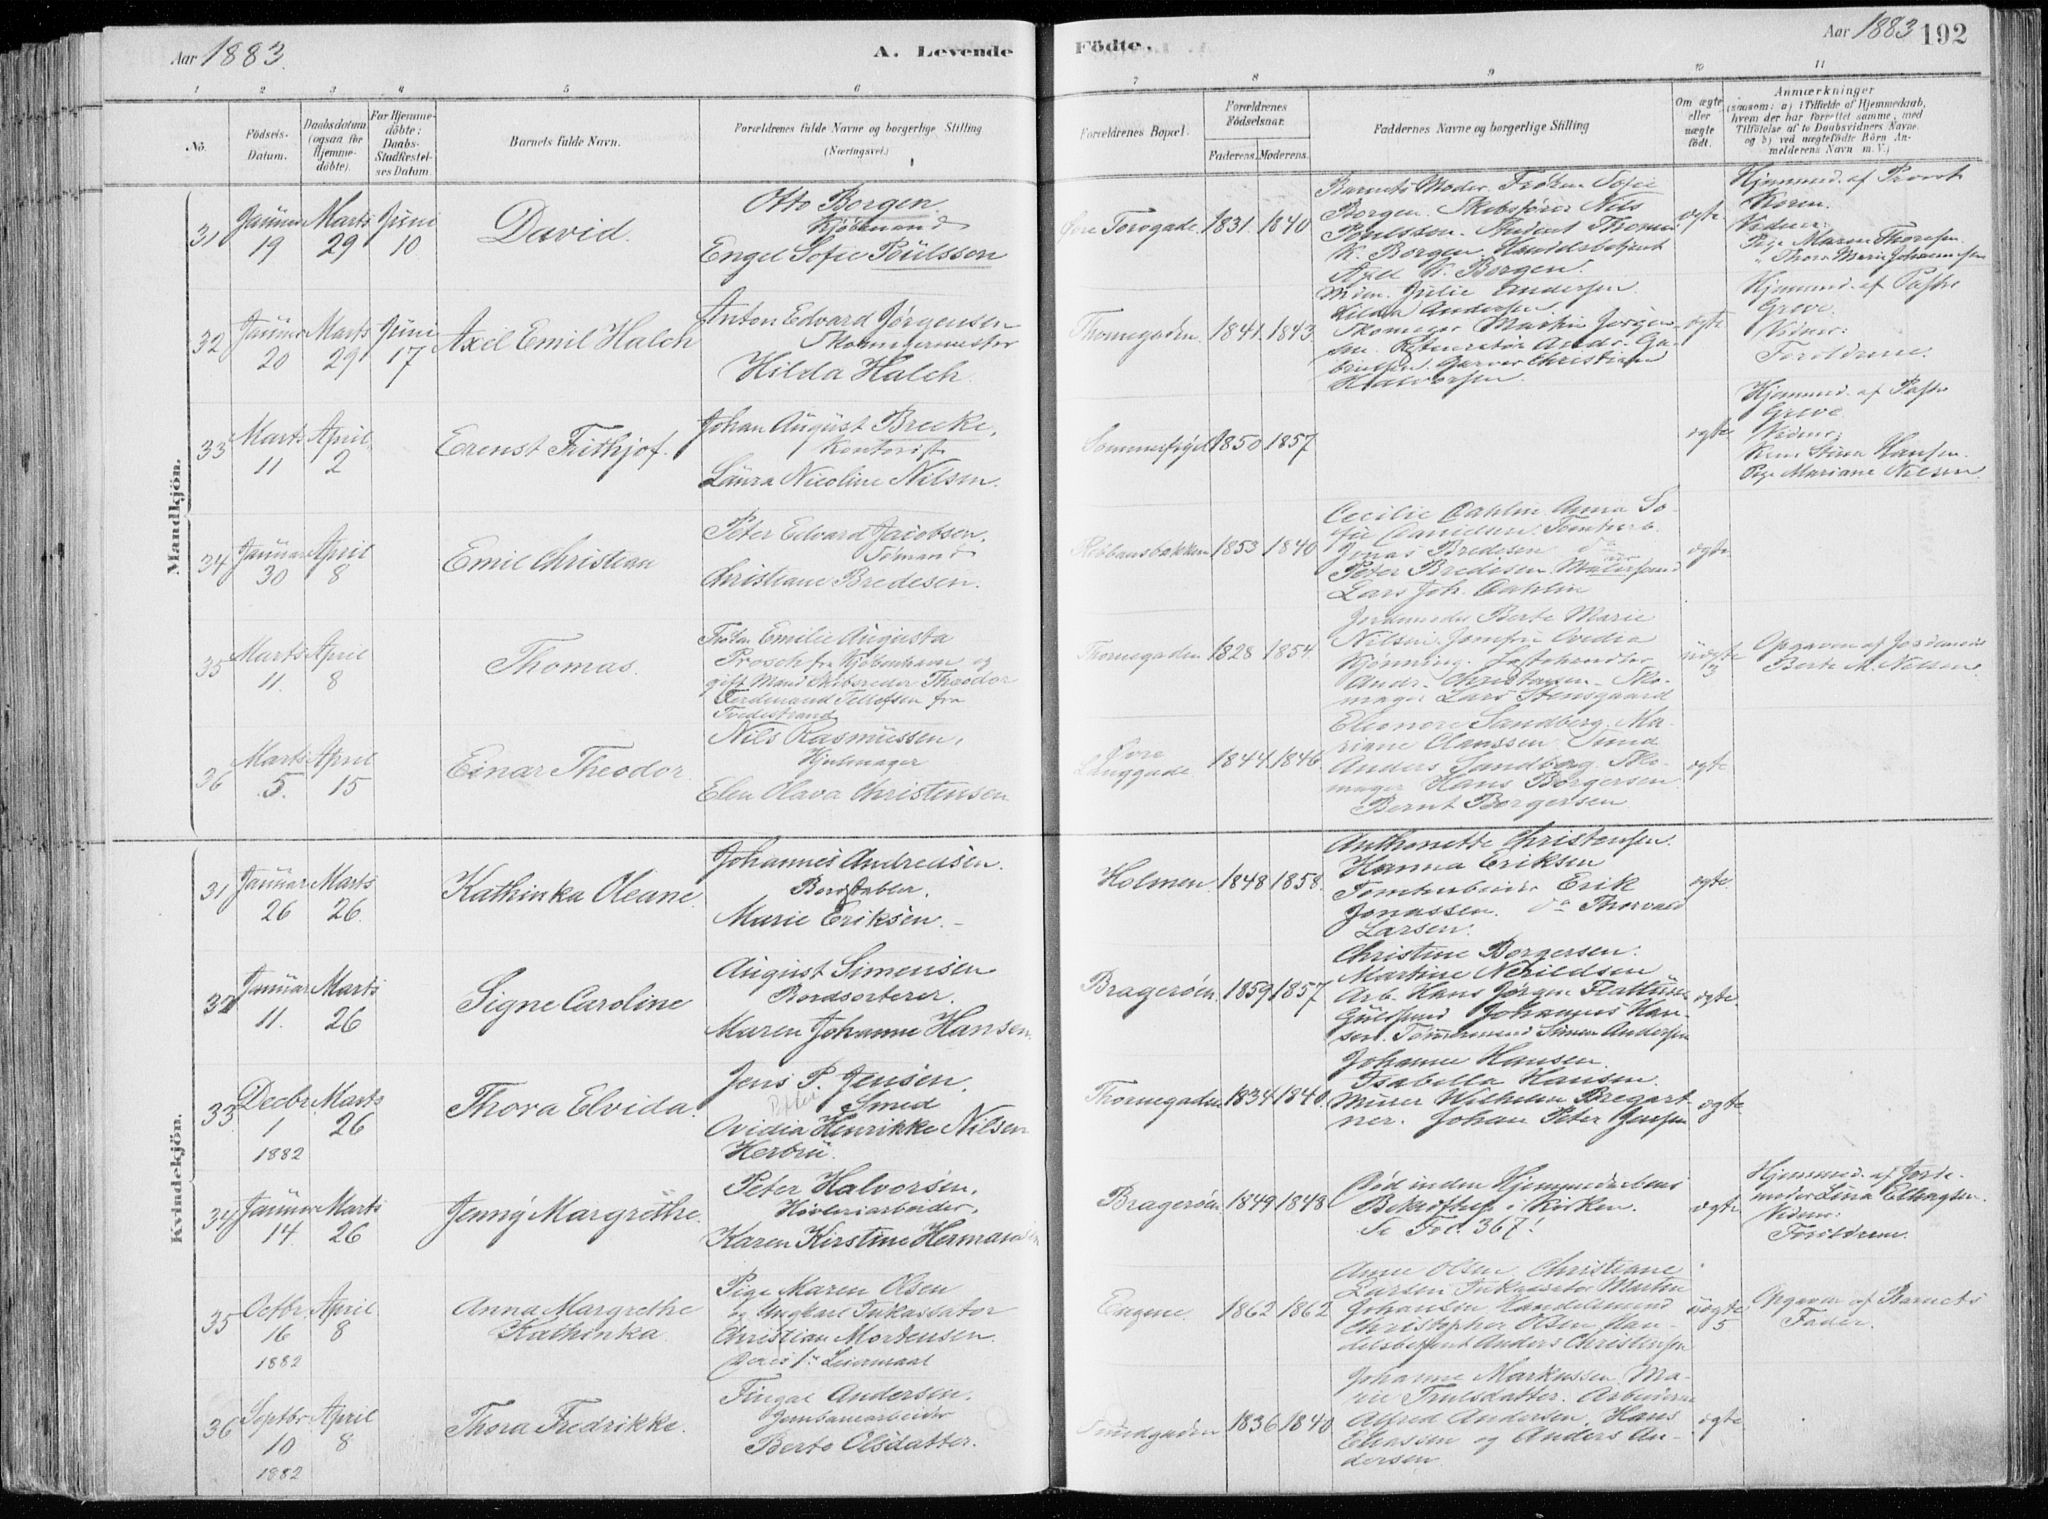 Aar 1883.
A. Levende
Födte.
Aar 1883
192
1 2 3 4 5 6 7 8 9 10 11
No.
Födsels-Datum.
Daabsdatum (ogsaa for Hjemmedöbte).
For Hjemmedöbte: Daabs-Stadfæstelses Datum.
Barnets fulde Navn.
Forældrenes fulde Navne og borgerlige Stilling
(Næringsvei.)
Forældrenes Bopæl.
Forældrenes Födselsaar.
Faderens. Moderens.
Faddernes Navne og borgerlige Stilling
Om ægte eller uægte födt.
Anmærkninger
(saasom: a) i Tilfælde af Hjemmedaab, hvem der har forrettet samme, med Tilföielse af to Daabsvidners Navne, og b) ved uægtefödte Börn Anmelderens Navn m. V.)
Mandkjön.
31 Januar 19 Marts 29 Juni 10
David.
Otto Borgen
Kjøbmand
Engel Sofie Poulsson
Øvre Torvgade. 1831. 1840
Barnets Moder. Frøken Sofie
Borgen. Skibsfører Nils
Poulsson. Student Thomas
K. Borgen. Handelsbetjent
Axel K. Borgen.
ægte
Hjemmed. af Provst
Koren.
Vidner:
Pige Maren Thoresen.
" Thora Marie Johannesen
32 Januar 20 Marts 29 Juni 17
Axel Emil Halch
Anton Edvard Jørgensen
Skomagermester
Hilda Halch.
Thornegaden. 1841. 1843.
Julie Andersen.
Hilda Andersen.
Skomager Martin Jørgensen.
Andr. Gabrielsen. Garver Christian
Halvorsen.
ægte
Hjemmed. af Pastor
Greve.
Vidner:
Forældrene.
33 Marts 11 April 2
Erenst Frithjof.
Johan August Brecke,
Kontorist
Laura Nicoline Nilsen.
1850 1857
ægte
Hjemmed. af Pastor
Greve
Vidner:
Stina Hansen.
Pige Mariane Nilsen
34 Januar 30 April 8
Emil Christian
Peter Edvard Jacobsen.
Sømand
Christiane Bredesen.
1853 1840
Cecilie Dahlin Anna Sofie
Danielsen. Tomtearb.
Jonas Bredesen do
Peter Bredesen.
Lars Joh. Dahlin
ægte
35 Marts 11. April 8
Thomas.
Frøken Emilie Augusta
Prosch fra Kjøbenhavn og
gift Mand Skibsreder Theodor
Ferdinand Tellefsen fra
Tvedestrand
Thornegaden 1828 1854.
Jordemoder Berte Marie
Nilsen. Jomfru Ovidia
Kjønning.
Andr. Christensen. Skomager
Lars Stensgaard
uægte 3
Opgaven af Jordemoder
Berte M. Nilsen.
36 Marts 5. April 15
Einar Theodor.
Nils Rasmussen,
Hjulmager
Elen Olava Christensen
Øvre Langgade 1844 1846.
Eleonore Sandberg. Mariane
Clausen. Smed
Anders Sandberg. Skomager
Hans Borgersen
Bernt Borgersen
ægte
Kvindekjön.
31 Januar 26 Marts 26.
Kathinka Oleane.
Johannes Andreasen.
Bordstabler.
Marie Eriksen.
Holmen. 1848 1858.
Anthonette Christensen.
Hanna Eriksen
Tomtearbeider Erik
Jonassen. do Thorvald
Larsen.
ægte.
32 Januar 11. Marts 26
Signe Caroline
August Simensen
Bordsorterer.
Maren Johanne Hansen.
Bragerøen. 1859 1857
Christine Borgersen.
Martine Nerildsen
Arb. Hans Jørgen
Guldsmed Johannes Hansen.
Tømmermand Simen Andersen
ægte.
33 Decbr 1 1882 Marts 26
Thora Elvida.
Jens P. Jensen.
Peter
Smed
Ovidia Henrikke Nilsen
Herbru.
Thornegaden 1834 1840.
Johanne Hansen.
Isabella Hansen.
Murer Wilhelm Bregartner.
Johan Peter Jensen
ægte
34 Januar 14. Marts 26
Jenny Margrethe.
Peter Halvorsen,
Høvleriarbeider,
Karen Kirstine Hermansen
Bragerøen 1849 1848
Død inden Hjemmedaabens
Bekræftelse i Kirken.
Se Fol. 367!
ægte
Hjemmed. af Jordemoder
Lina Ellingsen.
Vidner:
Forældrene.
35 Octbr. 16 1882 April 8
Anna Margrethe
Kathinka.
Pige Maren Olsen
og Ungkarl Inkassator
Christian Mortensen.
Deres 1ste Leiermaal
Engene 1862 1862
Anne Olsen, Christiane
Larsen. Inkassator Martin
Johansen Handelsmand
Christopher Olsen Handelsbetjent
Anders Christensen
uægte 5
Opgaven af Barnets
Fader.
36 Septbr. 10 1882 April 8
Thora Fredrikke.
Fingal Andersen.
Jernbanearbeider
Berte Olsdatter.
Smedgaden 1836 1840
Johanne Markussen. Marie
Trulsdatter. Arbeiderne
Alfred Andersen, Hans
Eliassen og Anders Andersen
ægte.